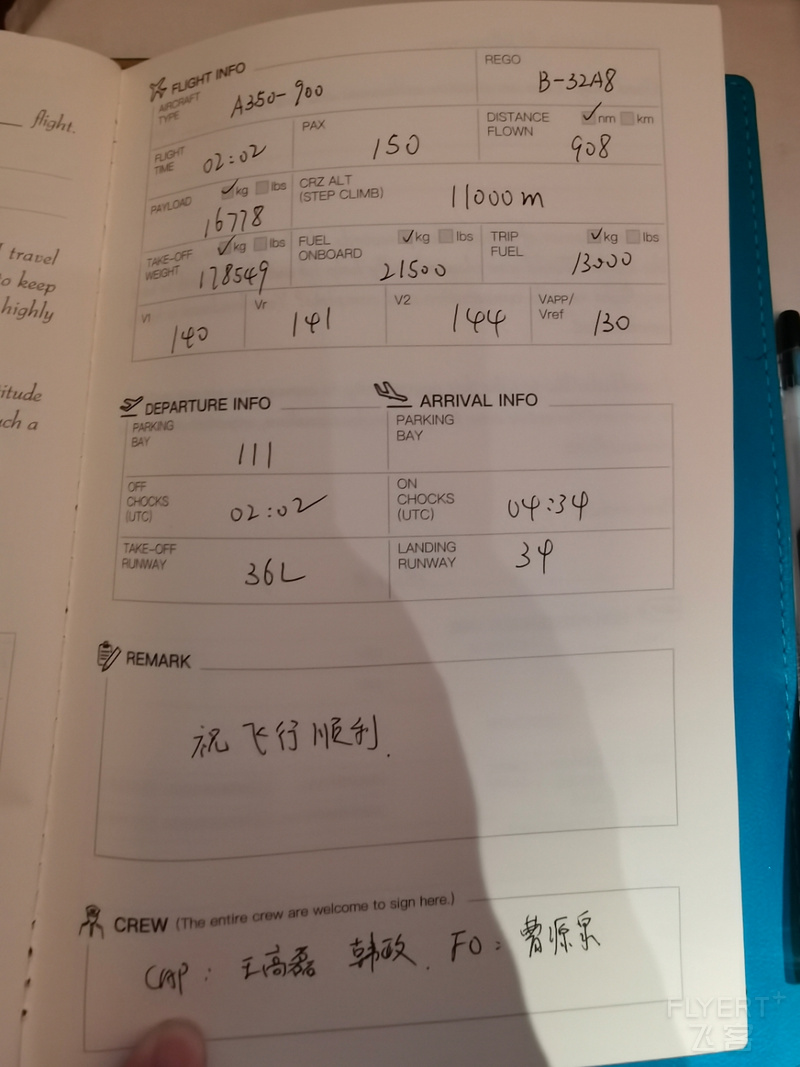 flight.
travel
to keep
highly
itude
ch a
FLIGHT INFO
AIRCRAFT TYPE A350-900
REGO B-32A8
FLIGHT TIME 02:02
PAX 150
DISTANCE FLOWN ✓nm km 908
PAYLOAD ✓kg lbs 16778
CRZ ALT (STEP CLIMB) 11000m
TAKE-OFF WEIGHT ✓kg lbs 178549
FUEL ONBOARD ✓kg lbs 21500
TRIP FUEL ✓kg lbs 13000
V1 140
Vr 141
V2 144
VAPP/Vref 130
DEPARTURE INFO
ARRIVAL INFO
PARKING BAY 111
PARKING BAY
OFF CHOCKS (UTC) 02:02
ON CHOCKS (UTC) 04:34
TAKE-OFF RUNWAY 36L
LANDING RUNWAY 34
REMARK
祝飞行顺利.
CREW (The entire crew are welcome to sign here.)
CAP: 王高磊 韩政. FO: 曹源泉
FLYERT+
飞客